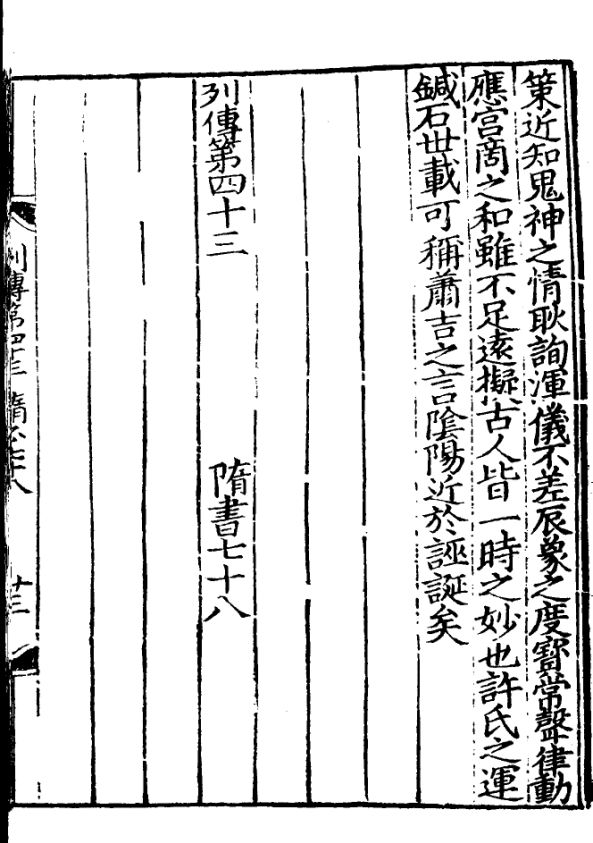 策近知鬼神之情耿詢渾儀不差辰象之度寳常聲律動
應宫商之和雖不足遠擬古人皆一時之妙也許氏之運
鍼石世載可稱蕭吉之言陰陽近於誣誕矣
列傳第四十三 隋書七十八
列傳第四十三 隋書七十八 十三